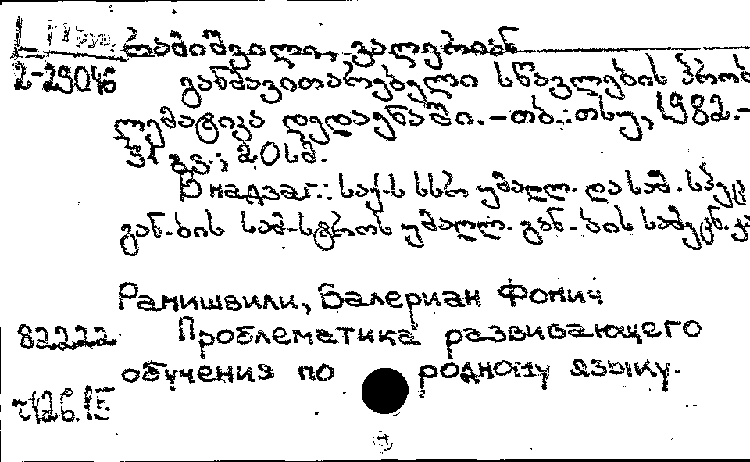 რამიშვილი, ვალერიან
2-29046 განმავითარებელი სწავლების პრობ
ლემატიკა დედაენაში. - თბ.: თსუ, 1982. -
31 გვ.; 20 სმ.
В надзаг.: საქ-ს სსრ უმაღლ. და საშ. სპეც
გან-ბის სამ-სტროს უმაღლ. გან-ბის სამეცნ.
Рамишвили, Валериан Фомич
82222 Проблематика развивающего
обучения по родному языку.